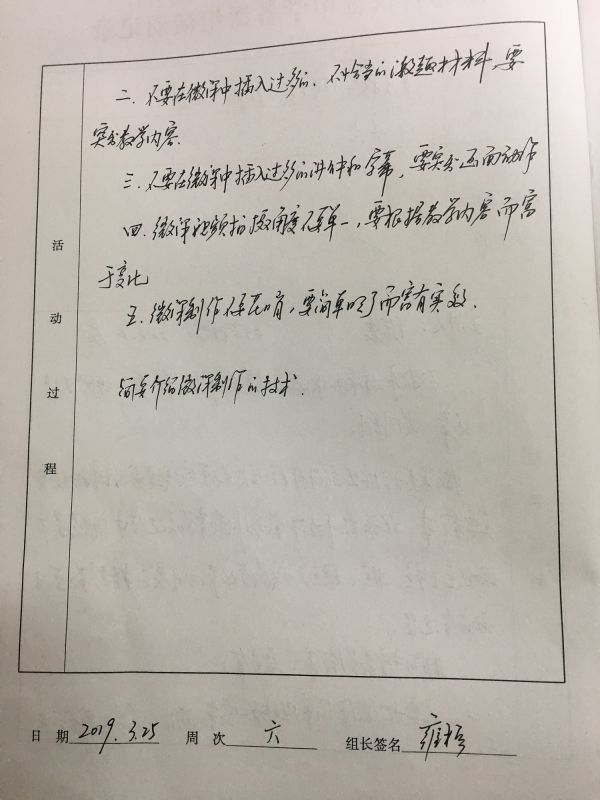 二、不要在微课中插入过多的、不恰当的激趣材料,要
突出教学内容.
三、不要在微课中插入过多的讲伴和字幕,要突出画面动作
四、微课视频拍摄角度不要单一,要根据教学内容而富
于变化
五、微课制作不要花哨,要简单明了而富有实效.
简要介绍微课制作的技术.
活
动
过
程
日 期 2019.3.25 周 次 六 组长签名